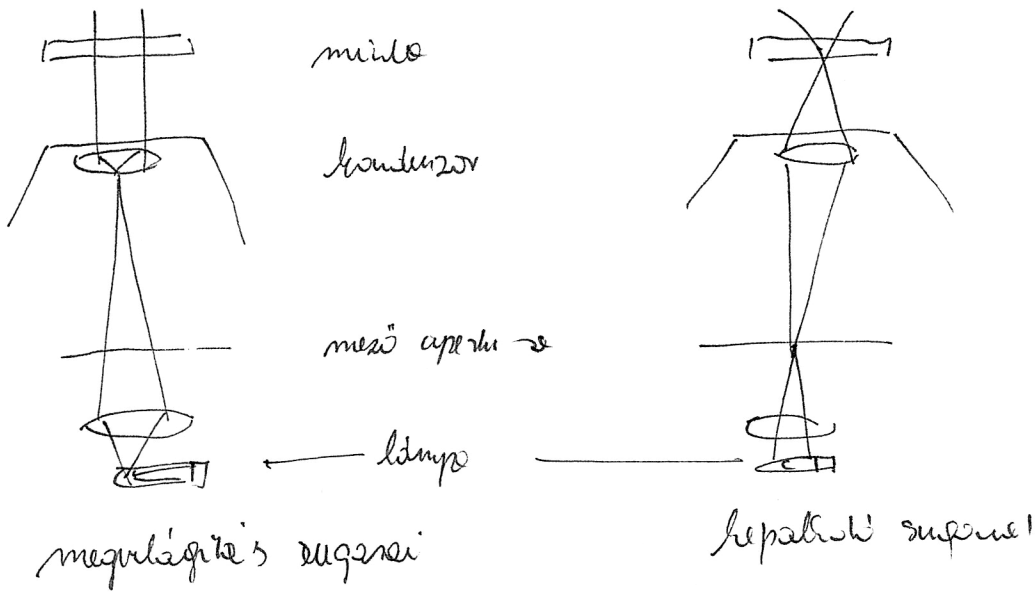 minta
kondenzor
mező apertura
lámpa
megvilágítás sugarai
képalkotó sugarai